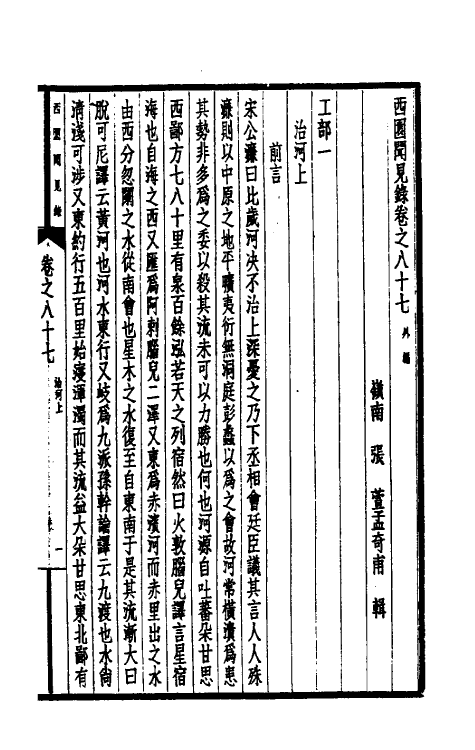 西園聞見錄卷之八十七 外編
嶺南 張 萱孟奇甫 輯
工部一
治河上
前言
宋公濂曰比歲河决不治上深憂之乃下丞相會廷臣議其言人人殊
濂則以中原之地平曠夷衍無洞庭彭蠡以爲之會故河常橫潰爲患
其勢非多爲之委以殺其流未可以力勝也何也河源自吐蕃朵甘思
西鄙方七八十里有泉百餘泓若天之列宿然曰火敦腦兒譯言星宿
海也自海之西又匯爲阿剌腦兒二澤又東爲赤濱河而赤里出之水
由西分忽闌之水從南會也里木之水復至自東南于是其流漸大曰
脫可尼譯云黃河也河水東行又岐爲九派孫幹論譯云九渡也水尙
清淺可涉又東約行五百里始寖渾濁而其流益大朵甘思東北鄙有
西園聞見錄
卷之八十七
治河上
一